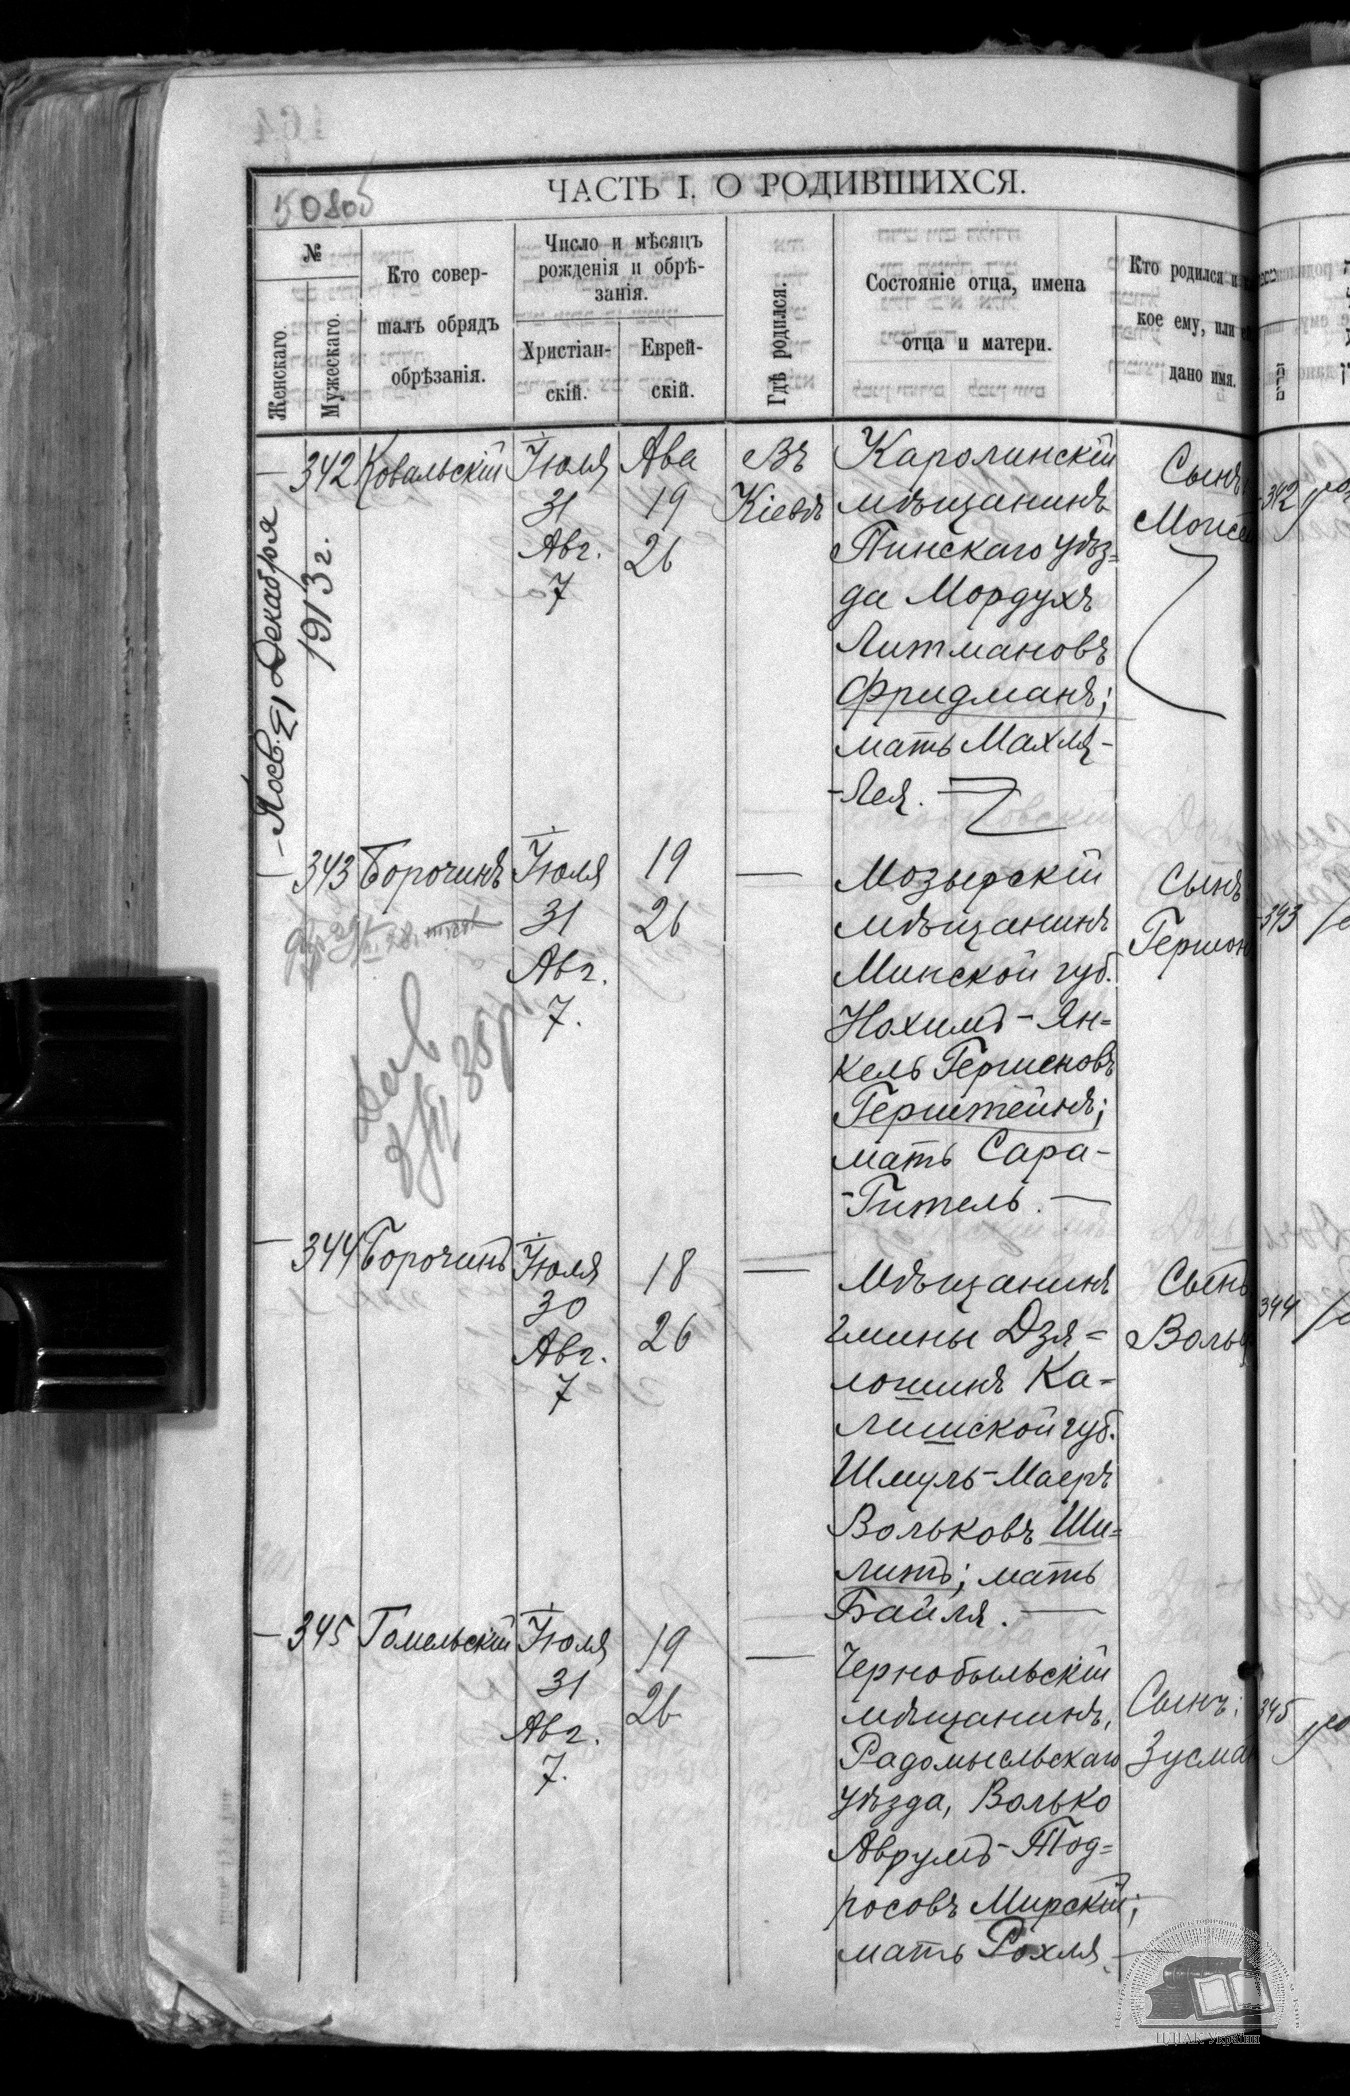 50805
ЧАСТЬ I. О РОДИВШИХСЯ.
№
Женскаго.
Мужескаго.
Кто совер-
шалъ обрядъ
обрѣзанія.
Число и мѣсяцъ
рожденія и обрѣ-
занія.
Христіан-
скій.
Еврей-
скій.
Гдѣ родился.
Состояніе отца, имена
отца и матери.
Кто родился и
кое ему, или
дано имя.
— 342 Ковальскій
Іюля
31
Авг.
7
Ава
19
26
Въ
Кіевѣ
Каролинскій
мѣщанинъ
Пинскаго уѣз=
да Мордухъ
Литмановъ
Фридманъ;
мать Махля-
-Лея.
Сынъ
Моисей
21 Декабря
1913 г.
— 343 Борочинъ
Іюля
31
Авг.
7.
19
26
—
Мозырскій
мѣщанинъ
Минской губ.
Нохимъ-Ян=
кель Гершоновъ
Герштейнъ;
мать Сара-
-Гитель. —
Сынъ
Гершон
— 344 Борочинъ
Іюля
30
Авг.
7
18
26
—
Мѣщанинъ
гмины Дзя=
лошинъ Ка=
лишской губ.
Шмуль-Маеръ
Вольковъ Ши=
литъ; мать
Байля. —
Сынъ
Воль
— 345 Гомельскій
Іюля
31
Авг.
7.
19
26
—
Чернобыльскій
мѣщанинъ,
Радомысльскаго
уѣзда, Волько
Аврумъ-Тод=
росовъ Мирскій;
мать Рохля —
Сынъ:
Зусма
342
343
344
345
ЦДІАК України